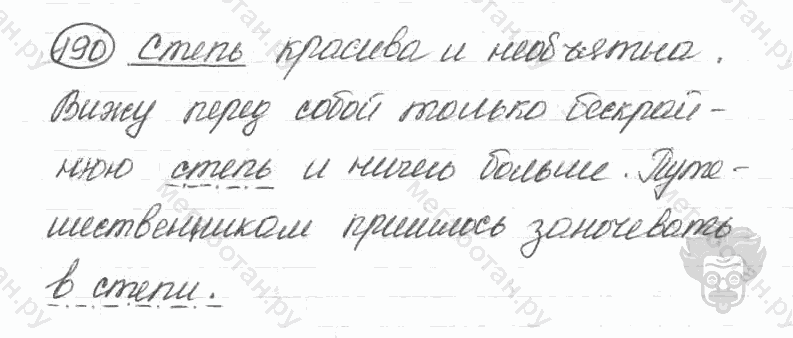 190 Степь красива и необъятна.
Вижу перед собой только бескрай-
нюю степь и ничего больше. Путе-
шественникам пришлось заночевать
в степи.
мегаботан.ру